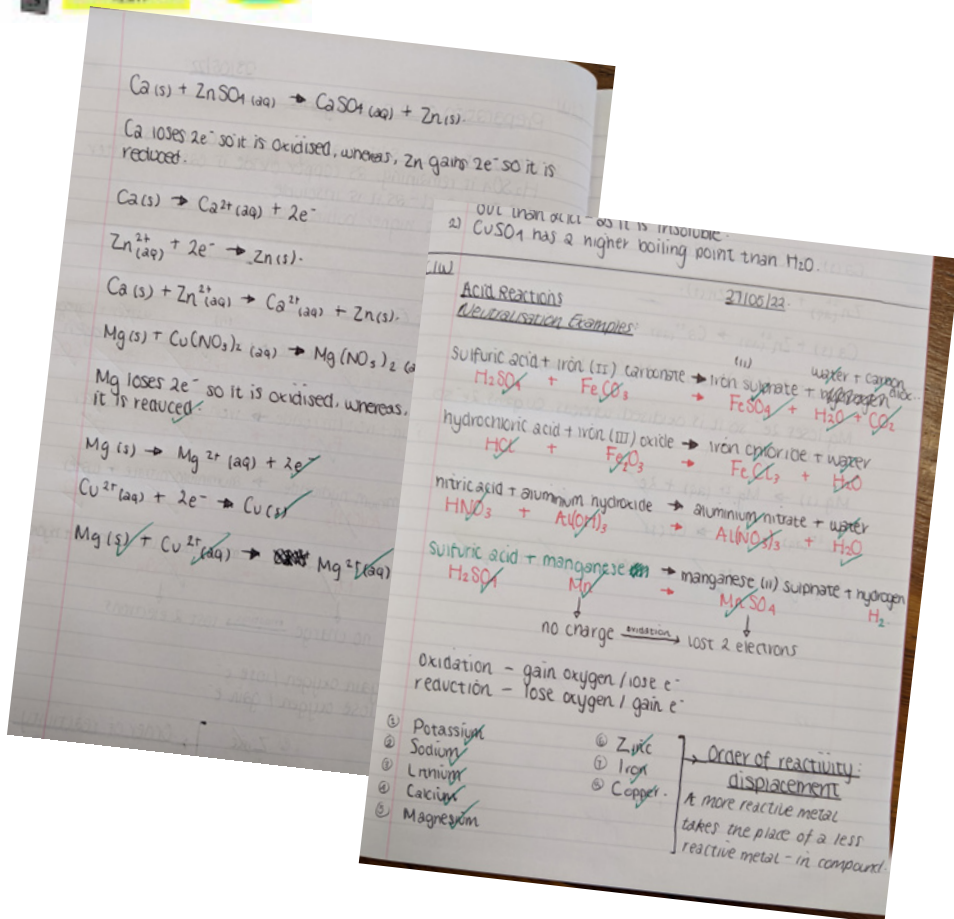 Ca(s) + ZnSO4 (aq) → CaSO4 (aq) + Zn(s).
Ca loses 2e⁻ so it is oxidised, whereas, Zn gains 2e⁻ so it is
reduced.
Ca(s) → Ca²⁺(aq) + 2e⁻
Zn²⁺(aq) + 2e⁻ → Zn(s).
Ca(s) + Zn²⁺(aq) → Ca²⁺(aq) + Zn(s).
Mg(s) + Cu(NO3)2 (aq) → Mg(NO3)2 (a
Mg loses 2e⁻ so it is oxidised, whereas,
it is reduced.
Mg (s) → Mg²⁺ (aq) + 2e⁻
Cu²⁺(aq) + 2e⁻ → Cu(s)
Mg(s) + Cu²⁺(aq) → Mg²⁺(aq)
out than acid - as it is insoluble.
2) CuSO4 has a higher boiling point than H2O.
Acid Reactions
27/05/22.
Neutralisation Examples:
(II) water + carbon diox..
sulfuric acid + iron (II) carbonate → iron sulphate +
H2SO4 + FeCO3 → FeSO4 + H2O + CO2
hydrochloric acid + iron (III) oxide → iron chloride + water
HCl + Fe2O3 → FeCL3 + H2O
nitric acid + aluminium hydroxide → aluminium nitrate + water
HNO3 + Al(OH)3 → Al(NO3)3 + H2O
sulfuric acid + manganese → manganese (II) sulphate + hydrogen
H2SO4 Mn → MnSO4 H2
no charge oxidation → lost 2 electrons
oxidation - gain oxygen / lose e⁻
reduction - lose oxygen / gain e⁻
Potassium
② Sodium
Lithium
④ Calcium
Magnesium
⑥ Zinc
⑦ Iron
⑧ Copper.
→ Order of reactivity:
displacement
A more reactive metal
takes the place of a less
reactive metal - in compound.